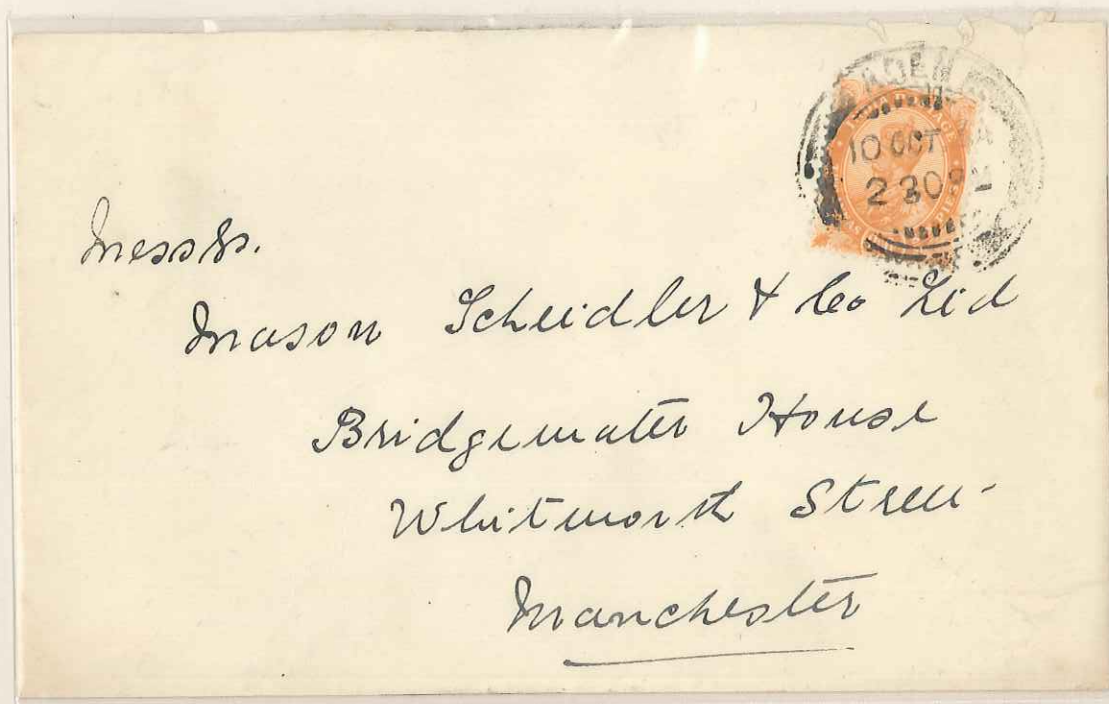 ADEN
10 OCT 34
2 30 PM
INDIA POSTAGE
Messrs.
Mason Scheidler & Co Ltd
Bridgewater House
Whitworth Street
Manchester